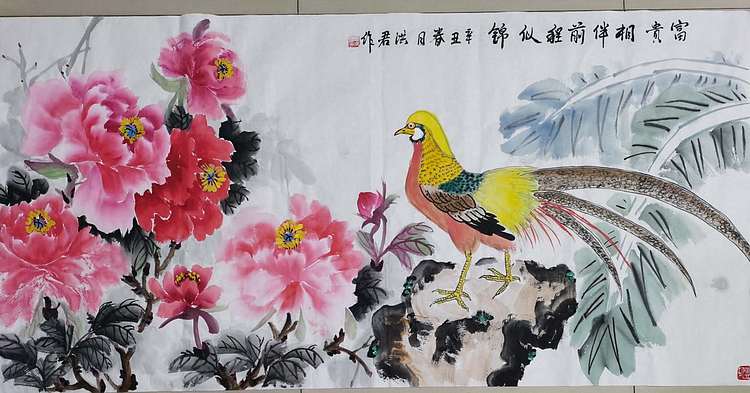 富贵相伴前程似锦 辛丑春月 洪君作